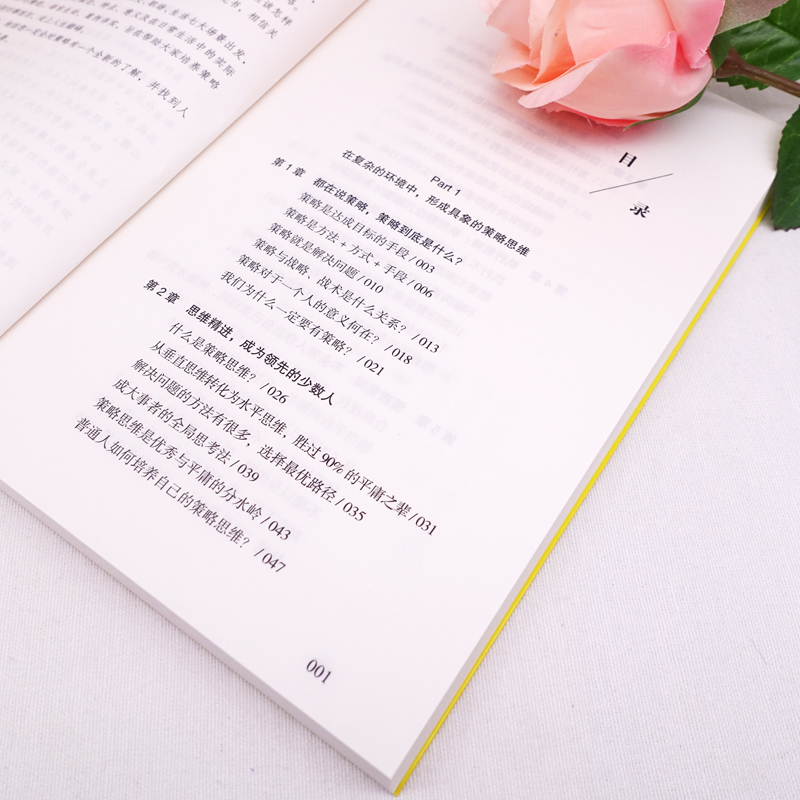 该怎样
书，相信关
七大场景出发，
意义及在日常生活中的实际
旨在帮助大家培养策略
一个全新的了解，并找到人
目
录
Part 1
在复杂的环境中，形成具象的策略思维
第 1 章 都在说策略，策略到底是什么？
策略是达成目标的手段 / 003
策略是方法 + 方式 + 手段 / 006
策略就是解决问题 / 010
策略与战略、战术是什么关系？ / 013
策略对于一个人的意义何在？ / 018
我们为什么一定要有策略？ / 021
第 2 章 思维精进，成为领先的少数人
什么是策略思维？ / 026
从垂直思维转化为水平思维，胜过 90% 的平庸之辈 / 031
解决问题的方法有很多，选择最优路径 / 035
成大事者的全局思考法 / 039
策略思维是优秀与平庸的分水岭 / 043
普通人如何培养自己的策略思维？ / 047
001